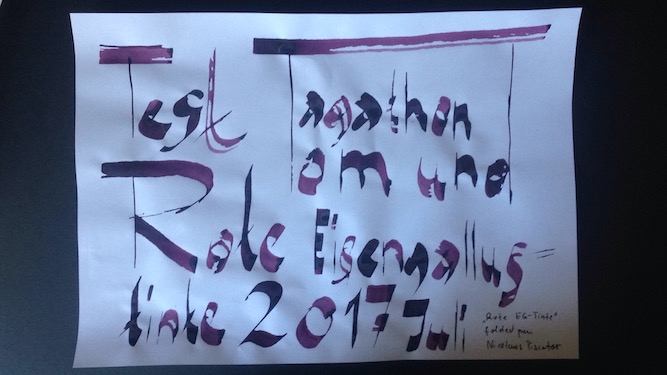 Test Tagathon
Tom und
Rote Eisengallus=
tinte 2017 Juli
„Rote EG-Tinte“
folded pen
Nicolaus Piscator